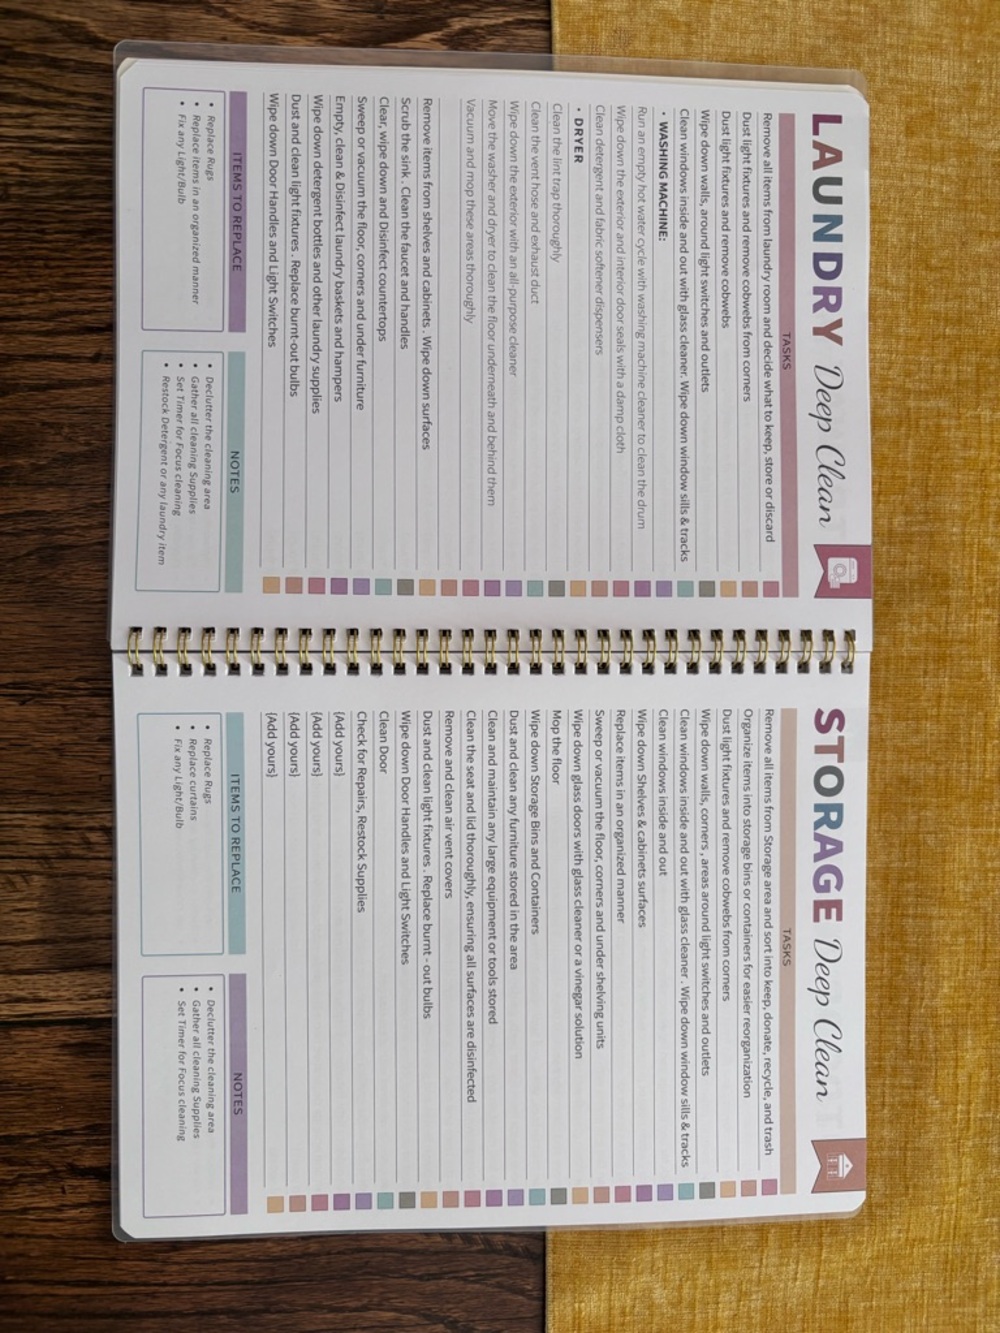 LAUNDRY Deep Clean
TASKS
Remove all items from laundry room and decide what to keep, store or discard
Dust light fixtures and remove cobwebs from corners
Dust light fixtures and remove cobwebs
Wipe down walls, around light switches and outlets
Clean windows inside and out with glass cleaner. Wipe down window sills & tracks
• WASHING MACHINE:
Run an empty hot water cycle with washing machine cleaner to clean the drum
Wipe down the exterior and interior door seals with a damp cloth
Clean detergent and fabric softener dispensers
• DRYER
Clean the lint trap thoroughly
Clean the vent hose and exhaust duct
Wipe down the exterior with an all-purpose cleaner
Move the washer and dryer to clean the floor underneath and behind them
Vacuum and mop these areas thoroughly
Remove items from shelves and cabinets . Wipe down surfaces
Scrub the sink . Clean the faucet and handles
Clear, wipe down and Disinfect countertops
Sweep or vacuum the floor, corners and under furniture
Empty, clean & Disinfect laundry baskets and hampers
Wipe down detergent bottles and other laundry supplies
Dust and clean light fixtures . Replace burnt-out bulbs
Wipe down Door Handles and Light Switches
ITEMS TO REPLACE
• Replace Rugs
• Replace items in an organized manner
• Fix any Light/Bulb
NOTES
• Declutter the cleaning area
• Gather all cleaning Supplies
• Set Timer for Focus cleaning
• Restock Detergent or any laundry item
STORAGE Deep Clean
TASKS
Remove all items from Storage area and sort into keep, donate, recycle, and trash
Organize items into storage bins or containers for easier reorganization
Dust light fixtures and remove cobwebs from corners
Wipe down walls, corners , areas around light switches and outlets
Clean windows inside and out with glass cleaner . Wipe down window sills & tracks
Clean windows inside and out
Wipe down Shelves & cabinets surfaces
Replace items in an organized manner
Sweep or vacuum the floor, corners and under shelving units
Wipe down glass doors with glass cleaner or a vinegar solution
Mop the floor
Wipe down Storage Bins and Containers
Dust and clean any furniture stored in the area
Clean and maintain any large equipment or tools stored
Clean the seat and lid thoroughly, ensuring all surfaces are disinfected
Remove and clean air vent covers
Dust and clean light fixtures . Replace burnt - out bulbs
Wipe down Door Handles and Light Switches
Clean Door
Check for Repairs, Restock Supplies
(Add yours)
(Add yours)
(Add yours)
(Add yours)
ITEMS TO REPLACE
• Replace Rugs
• Replace curtains
• Fix any Light/Bulb
NOTES
• Declutter the cleaning area
• Gather all cleaning Supplies
• Set Timer for Focus cleaning